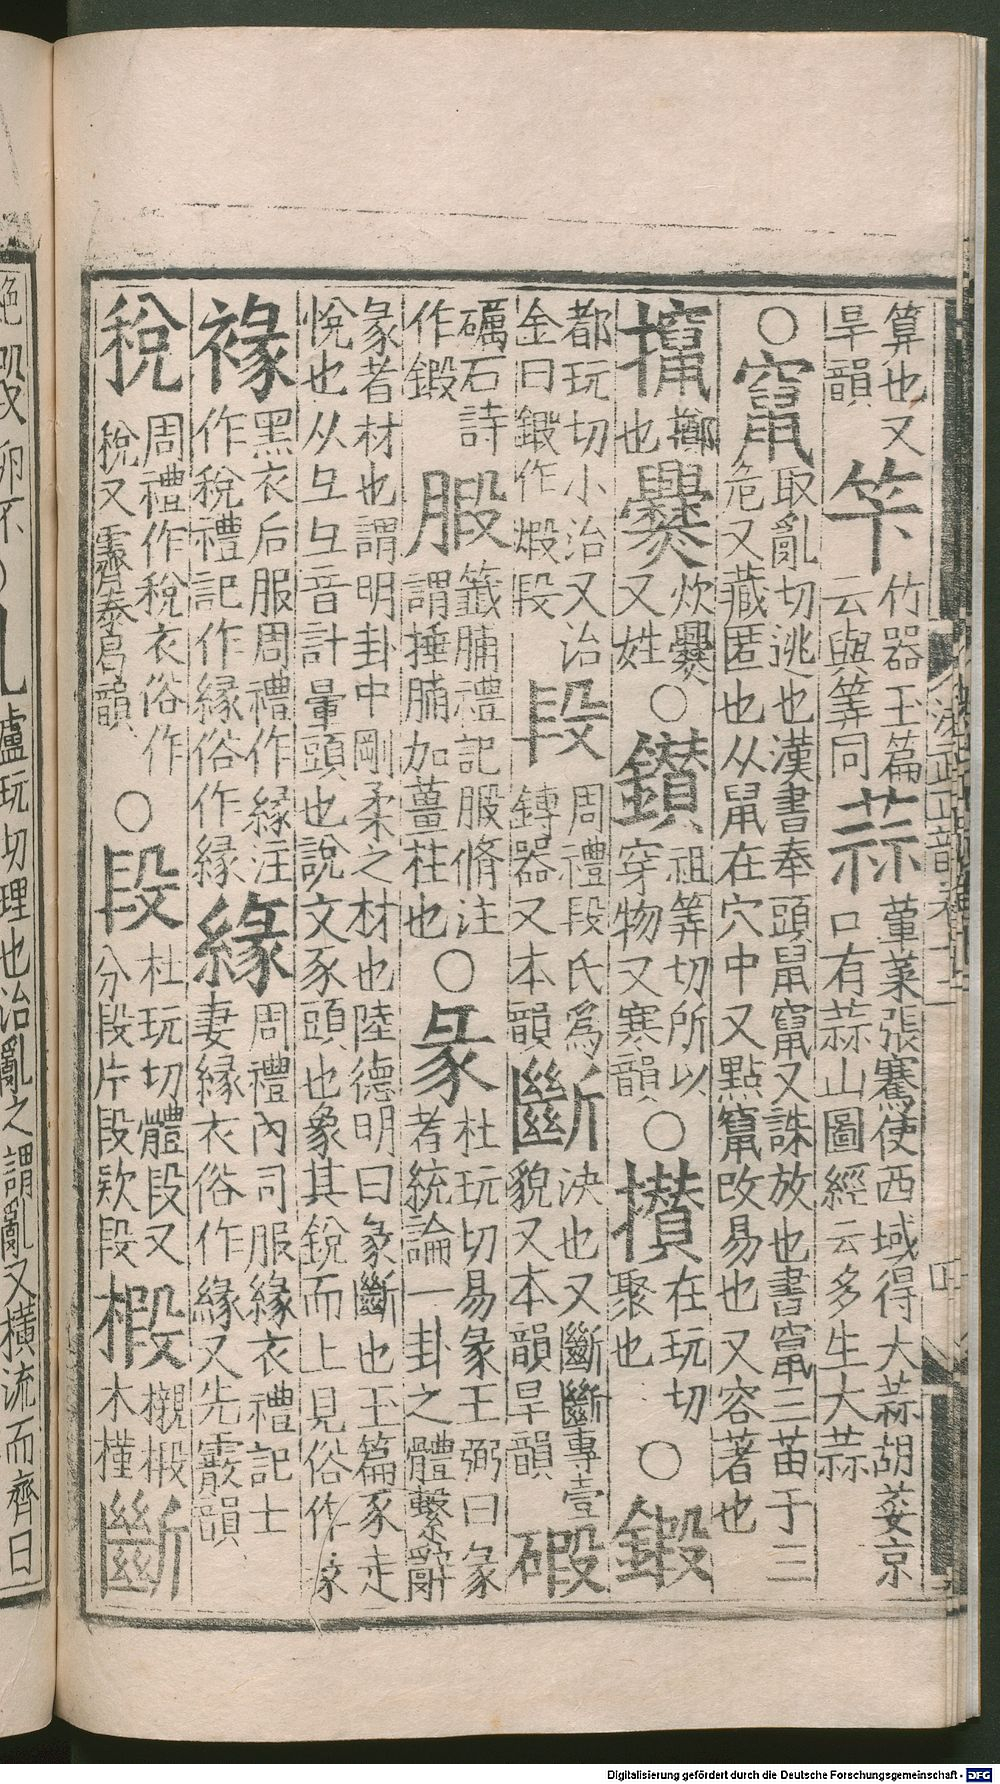 算也又旱韻笇竹器玉篇云與筭同蒜葷菜張騫使西域得大蒜胡荽京口有蒜山圖經云多生大蒜
○竄取亂切逃也漢書奉頭鼠竄又誅放也書竄三苗于三危又藏匿也从鼠在穴中又點竄改易也又容著也
攛擲也爨炊爨又姓○鑽祖筭切所以穿物又寒韻○攢在玩切聚也○鍛
都玩切小冶又冶金曰鍛作煅段段周禮段氏爲鎛器又本韻斷決也又斷斷專壹貌又本韻旱韻碫
礪石詩作鍛腶籤脯禮記腶脩注謂捶脯加薑桂也○彖杜玩切易彖王弼曰彖者統論一卦之體繫辭
彖者材也謂明卦中剛柔之材也陸德明曰彖斷也玉篇豕走悅也从彑彑音計彙頭也說文豕頭也象其銳而上見俗作彖
褖黑衣后服周禮作緣注作稅禮記作緣俗作緣緣周禮內司服緣衣禮記士妻緣衣俗作緣又先霰韻
稅周禮作稅衣俗作稅又霽泰曷韻○段杜玩切體段又分段片段欵段椴櫬椴木槿斷
盧玩切理也治亂之謂亂又橫流而齊曰
Digitalisierung gefördert durch die Deutsche Forschungsgemeinschaft - DFG